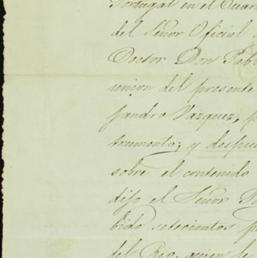 Portugal en el Cuar
del Señor Oficial
Doctor Don Pab
union del presente
sandro Vazquez, p
tamento; y despues
sobre el contenido
dijo el Señor
bido setecientos p
del Rio, quien de